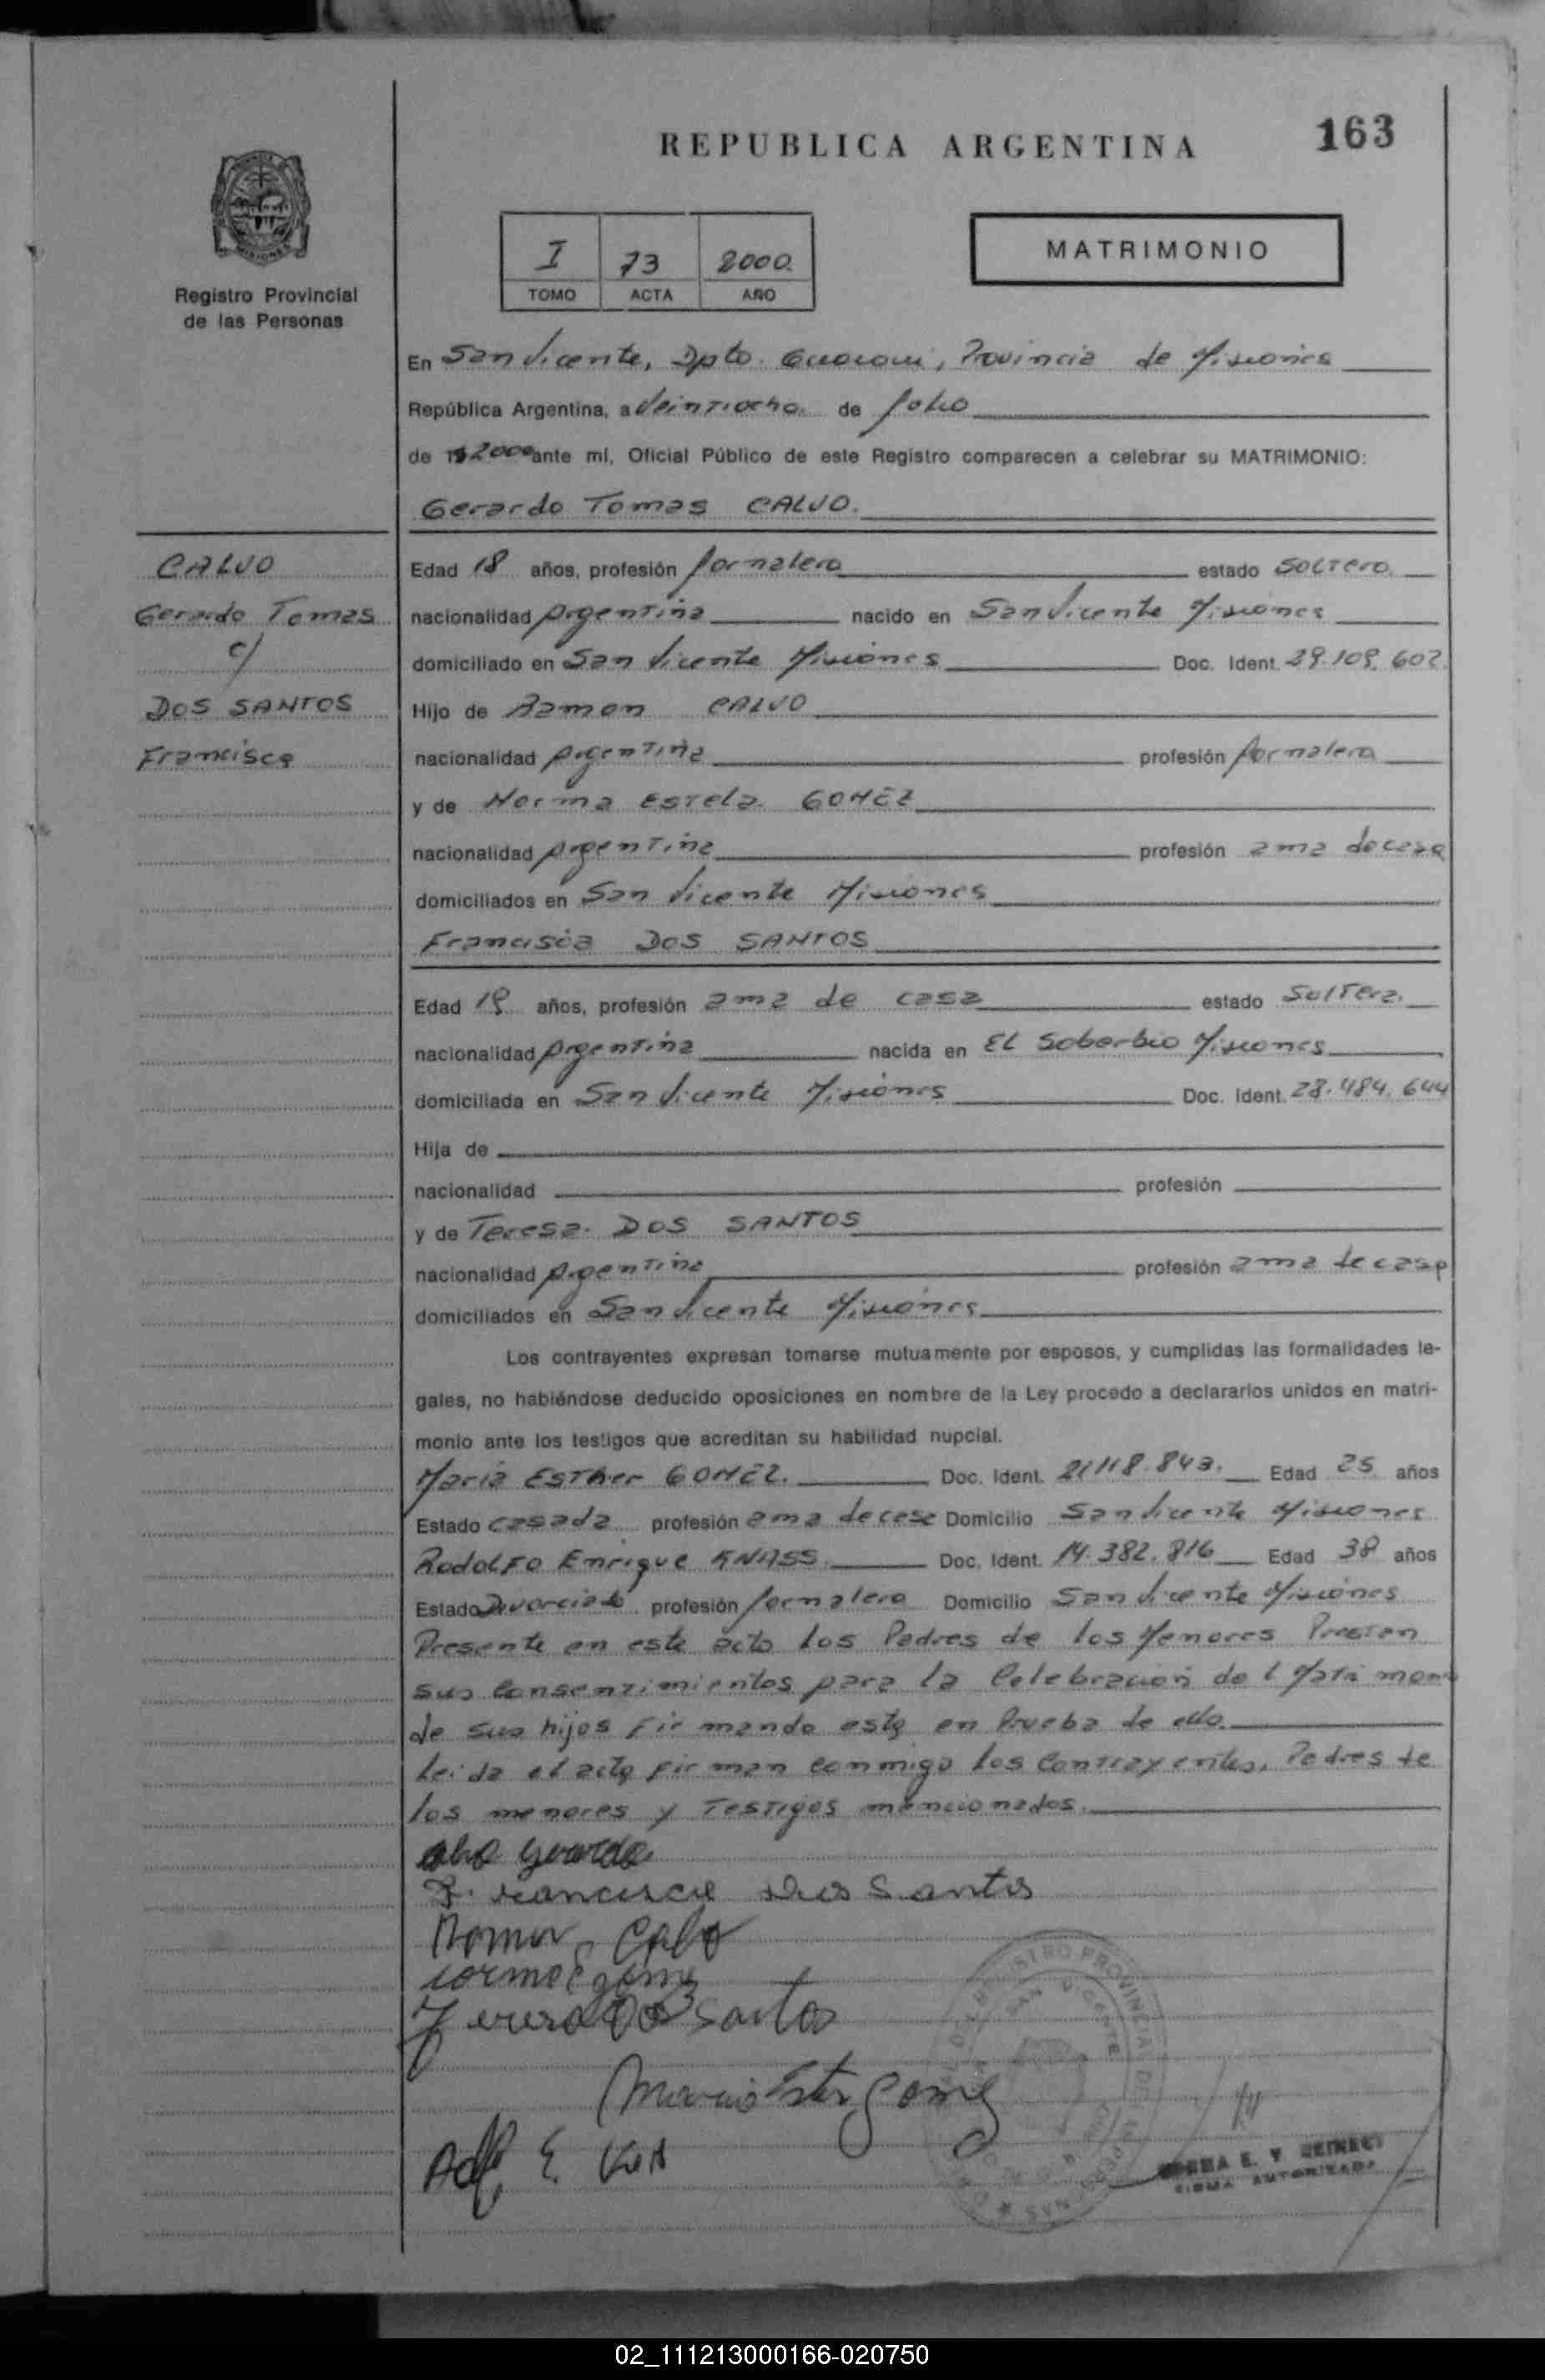 REPUBLICA ARGENTINA
163
Registro Provincial
de las Personas
I 73 2000
TOMO ACTA AÑO
MATRIMONIO
En San Vicente, Dpto. Guarani, Provincia de Misiones
República Argentina, a Veintiocho de Julio
de 2000 ante mí, Oficial Público de este Registro comparecen a celebrar su MATRIMONIO:
Gerardo Tomas CALVO.
CALVO
Gerardo Tomas
c/
DOS SANTOS
Francisca
Edad 18 años, profesión Jornalero estado Soltero
nacionalidad Argentina nacido en San Vicente Misiones
domiciliado en San Vicente Misiones Doc. Ident. 29.109.602
Hijo de Ramon CALVO
nacionalidad Argentina profesión Jornalero
y de Norma Estela GOMEZ
nacionalidad Argentina profesión ama de casa
domiciliados en San Vicente Misiones
Francisca DOS SANTOS
Edad 19 años, profesión ama de casa estado Soltera
nacionalidad Argentina nacida en El Soberbio Misiones
domiciliada en San Vicente Misiones Doc. Ident. 28.484.644
Hija de
nacionalidad profesión
y de Teresa DOS SANTOS
nacionalidad Argentina profesión ama de casa
domiciliados en San Vicente Misiones
Los contrayentes expresan tomarse mutuamente por esposos, y cumplidas las formalidades le-
gales, no habiéndose deducido oposiciones en nombre de la Ley procedo a declararlos unidos en matri-
monio ante los testigos que acreditan su habilidad nupcial.
Maria Esther GOMEZ. Doc. Ident. 21.118.843. Edad 25 años
Estado casada profesión ama de casa Domicilio San Vicente Misiones
Rodolfo Enrique KNASS Doc. Ident. 14.382.816 Edad 38 años
Estado Divorciado profesión Jornalero Domicilio San Vicente Misiones
Presente en este acto los Padres de los Menores Prestan
sus Consentimientos para la Celebracion del Matrimonio
de sus hijos Firmando esta en Prueba de ello.
Leida el acta firman conmigo los Contrayentes, Padres de
los menores y Testigos mencionados.
Gerardo
Francisca Dos Santos
Ramon Calvo
Norma E Gomez
Teresa Dos Santos
Maria Ester Gomez
E.
REGISTRO PROVINCIAL DE LAS PERSONAS
SAN VICENTE
FIRMA AUTORIZADA
02_111213000166-020750